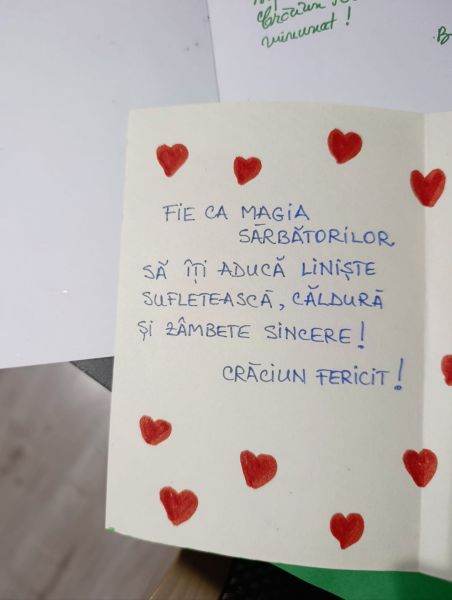 Crăciun
minunat!
FIE CA MAGIA
SĂRBĂTORILOR
SĂ ÎȚI ADUCĂ LINIȘTE
SUFLETEASCĂ, CĂLDURĂ
ȘI ZÂMBETE SINCERE!
CRĂCIUN FERICIT!